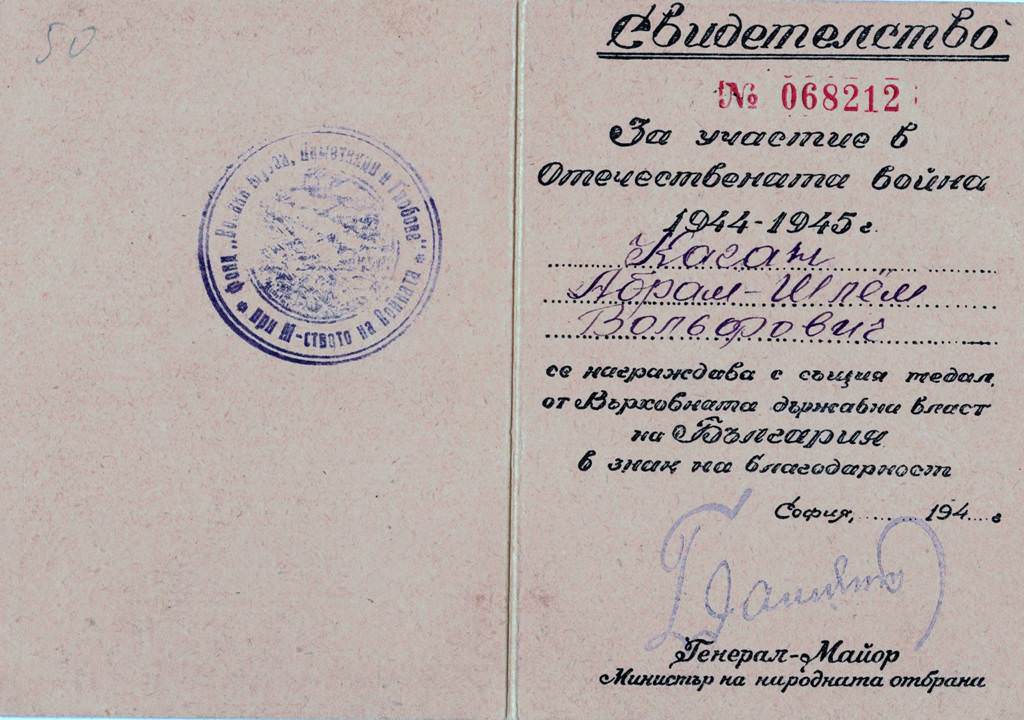 50
фонд „ Музей, Паметници и Гробове"
при М-ството на Войната
Свидетелство
№ 068212
За участие в
Отечествената война
1944-1945 г.
Каган
Абрам-Шлём
Вольфович
се награждава с същия медал,
от Върховната държавна власт
на България
в знак на благодарност
София, ........ 194....г
Генерал-Майор
Министър на народната отбрана